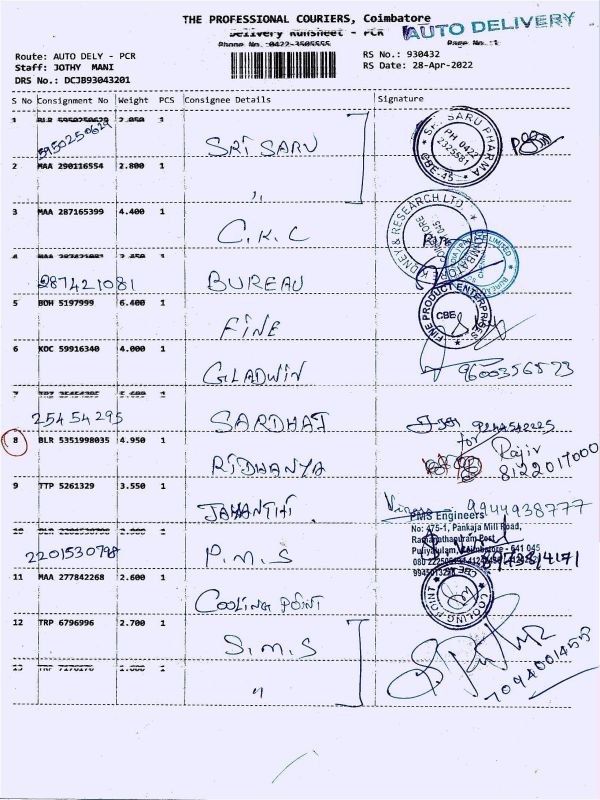 THE PROFESSIONAL COURIERS, Coimbatore
Delivery Runsheet - PCR
AUTO DELIVERY
Phone No.:0422-3505555 Page No.:1
Route: AUTO DELY - PCR RS No.: 930432
Staff: JOTHY MANI RS Date: 28-Apr-2022
DRS No.: DCJB93043201
S No Consignment No Weight PCS Consignee Details Signature
1 BLR 5950250629 2.050 1
5950250629 SRI SARU
SRI SARU PHARMA PH 0422 2325581 CBE-45
2 MAA 290116554 2.800 1
,,
3 MAA 287165399 4.400 1
C.K.C
KIDNEY & RESEARCH LTD.
4 MAA 287421081 2.450 1
287421081 BUREAU
5 BOH 5197999 6.400 1
FINE
FINE PRODUCT ENTERPRISES CBE
6 KDC 59916340 4.000 1
GLADWIN 9600356573
25454295 SARDHAJ
for
8 BLR 5351998035 4.950 1
RIDHANYA Rajiv
8122017000
9 TTP 5261329 3.550 1
JAHANTHI. 9944938777
PMS Engineers
No: 475-1, Pankaja Mill Road,
Ramanathapuram Post
Puliyakulam, Coimbatore - 641 045
2201530798 P.M.S
11 MAA 277842268 2.600 1
COOLING POINT
COOLING POINT CBE
12 TRP 6796996 2.700 1
S.M.S
13 TRP 7170176 1.000 1
,,